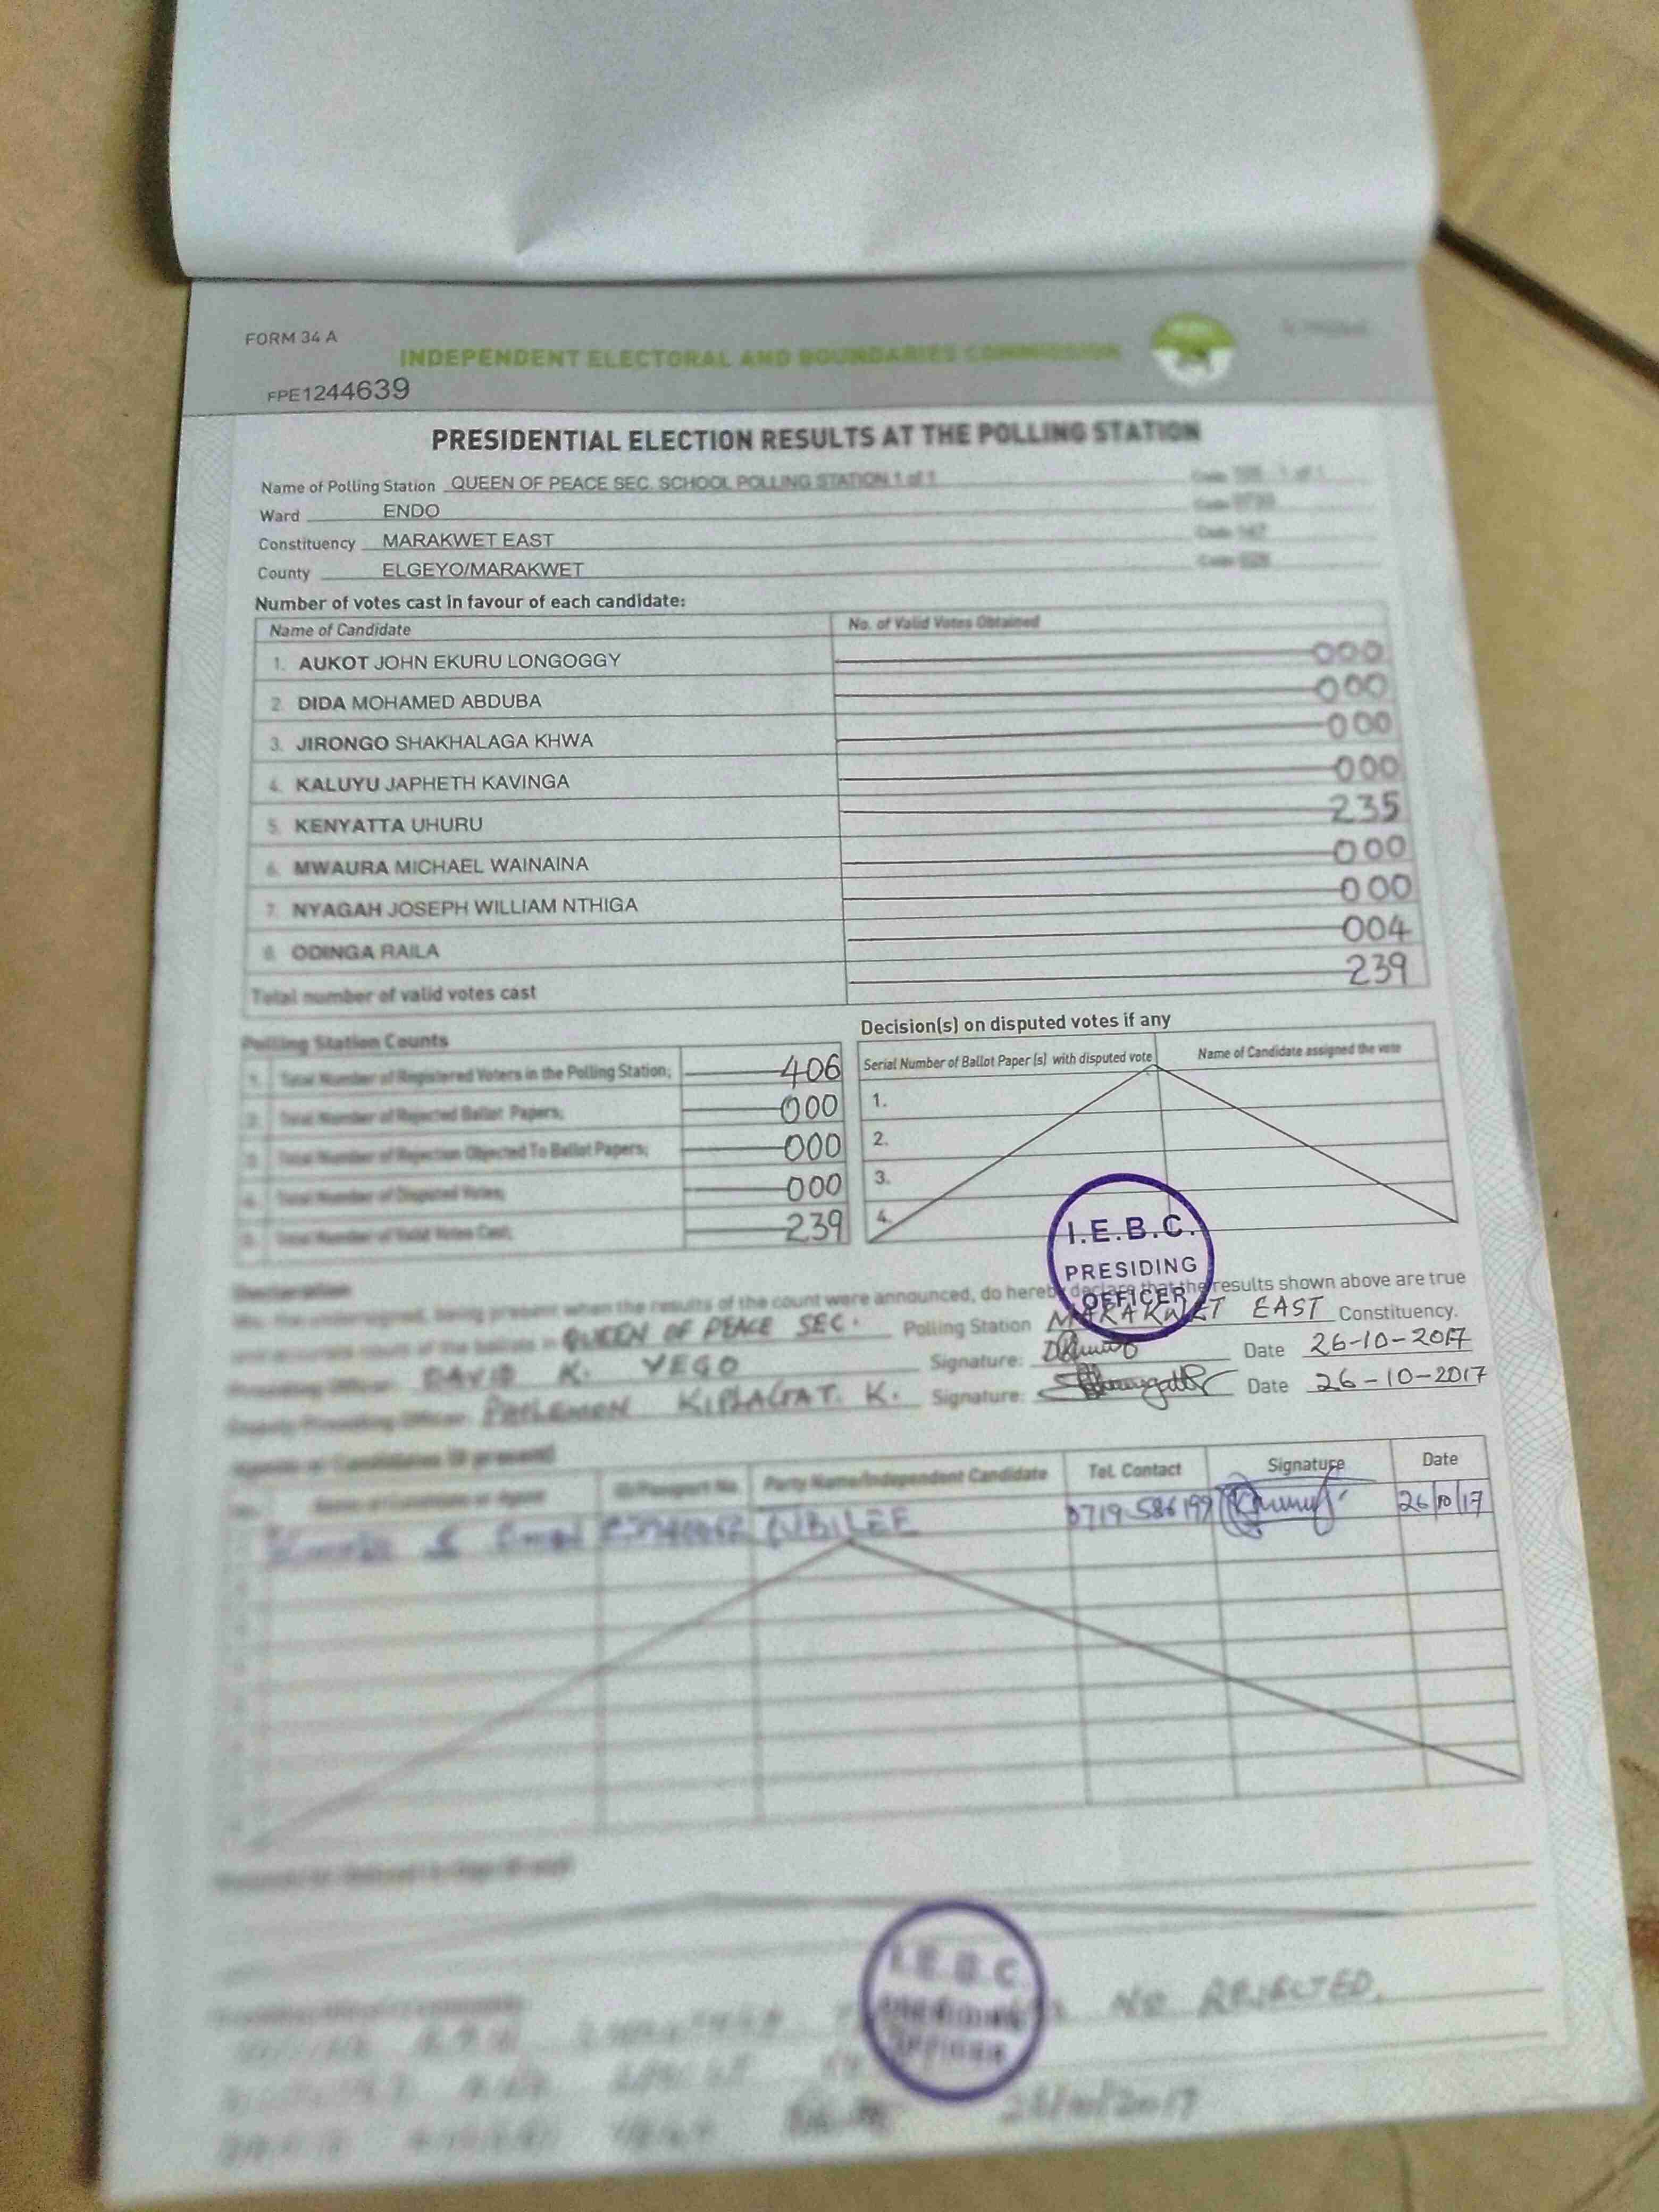 FORM 34 A
INDEPENDENT ELECTORAL AND BOUNDARIES COMMISSION
FPE1244639
PRESIDENTIAL ELECTION RESULTS AT THE POLLING STATION
Name of Polling Station QUEEN OF PEACE SEC. SCHOOL POLLING STATION 1 of 1
Ward ENDO
Constituency MARAKWET EAST
County ELGEYO/MARAKWET
Number of votes cast in favour of each candidate:
Name of Candidate No. of Valid Votes Obtained
1. AUKOT JOHN EKURU LONGOGGY 000
2. DIDA MOHAMED ABDUBA 000
3. JIRONGO SHAKHALAGA KHWA 000
4. KALUYU JAPHETH KAVINGA 000
5. KENYATTA UHURU 235
6. MWAURA MICHAEL WAINAINA 000
7. NYAGAH JOSEPH WILLIAM NTHIGA 000
8. ODINGA RAILA 004
Total number of valid votes cast 239
Polling Station Counts
1. Total Number of Registered Voters in the Polling Station; 406
2. Total Number of Rejected Ballot Papers; 000
3. Total Number of Rejection Objected To Ballot Papers; 000
4. Total Number of Disputed Votes; 000
5. Total Number of Valid Votes Cast; 239
Decision(s) on disputed votes if any
Serial Number of Ballot Paper (s) with disputed vote Name of Candidate assigned the vote
1.
2.
3.
4.
I.E.B.C.
PRESIDING
OFFICER
Declaration
We, the undersigned, being present when the results of the count were announced, do hereby declare that the results shown above are true
and accurate count of the ballots in QUEEN OF PEACE SEC. Polling Station MARAKWET EAST Constituency.
Presiding Officer: DAVID K. YEGO Signature: Date 26-10-2017
Deputy Presiding Officer: PHILEMON KIPLAGAT. K. Signature: Date 26-10-2017
Agents or Candidates (if present)
Name of Candidate or Agent ID/Passport No. Party Name/Independent Candidate Tel. Contact Signature Date
JUBILEE 0719586199 26/10/17
I.E.B.C
PRESIDING
OFFICER
NO REJECTED.
26/10/2017